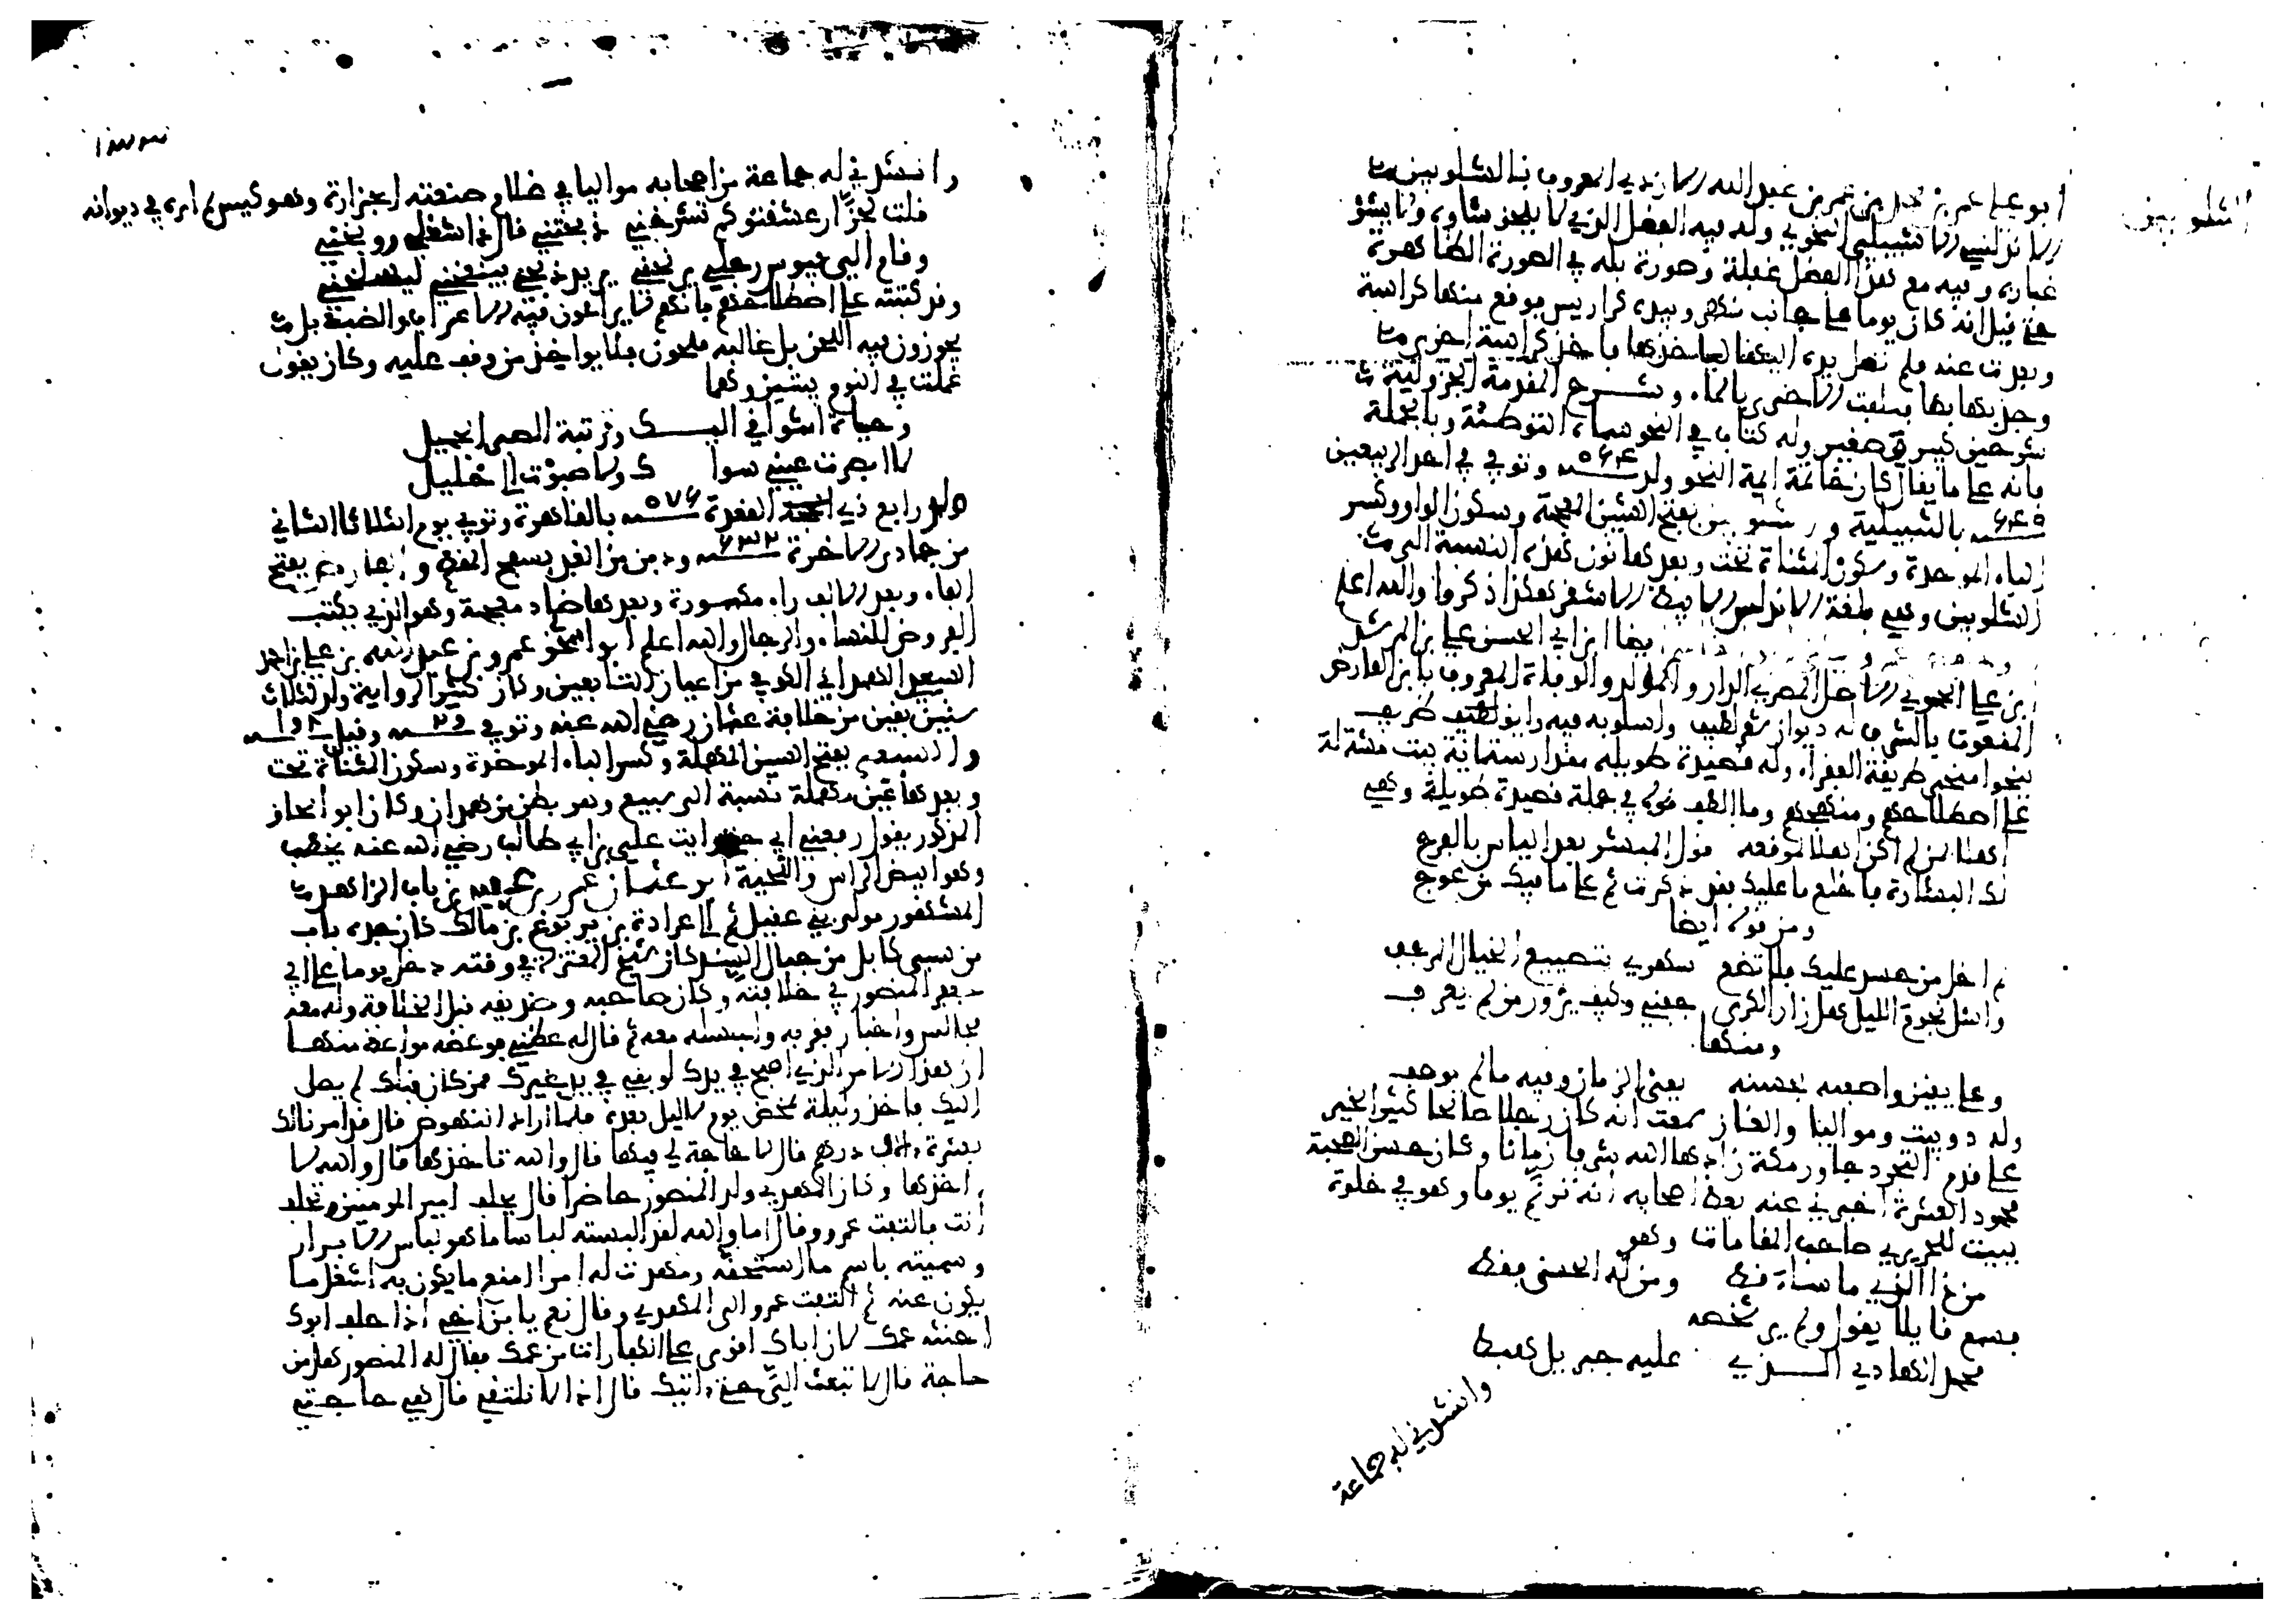 الشلوبيني
أبو علي عمر بن محمد بن عمر بن عبد الله الازدي المعروف بالشلوبيني
الاندلسي الاشبيلي النحوي وله فيه الفضل الذي لا يلحق شاوه ولا يشق
غباره وفيه مع هذا الفضل غفلة وصورة بله في الصورة الظاهرة
حتى قيل انه كان يوما على جانب نهر وبيده كراريس فوقع منها كراسة
وبعدت عنه فلم تصل يده اليها لياخذها فاخذ كراسة اخرى
وجذبها بها فتلفت الاخرى بالماء وشرح المقدمة الجزولية
شرحين كبير وصغير وله كتاب في النحو سماه التوطئة وبالجملة
فانه على ما يقال كان خاتمة ايمة النحو ولد سنة ٥٦٢ وتوفي في احد الربيعين
سنة ٦٤٥ باشبيلية و بفتح الشين المعجمة وسكون الواو وكسر
الباء الموحدة وسكون المثناة تحت وبعدها نون هذه النسبة الى
الشلوبين وهي بلغة الاندلس الابيض الاشقر هكذا ذكروا والله اعلم
ايضا ابن ابي الحسن علي بن المرشد
بن علي الحموي الاصل المصري الدار والمولد والوفاة المعروف بابن الفارض
المنعوت بالشرف له ديوان شعر لطيف واسلوبه فيه رايق ظريف
ينحوا منحى طريقة الفقراء وله قصيدة طويلة مقدار ستماية بيت مشتملة
على اصطلاحهم ومنهجهم وما الطف قوله في جملة قصيدة طويلة وهي
اهلا بمن لم اكن اهلا لموقعه قول المبشر بعد الياس بالفرج
لك البشارة فاخلع ما عليك فقد ذكرت ثم على ما فيك من عوج
ومن قوله ايضا
لم اخل من حسد عليك فلا تضع سهري بتضييع الخيال المرجف
واسل نجوم الليل هل زار الكرى جفني وكيف يزور من لم يعرف
ومنها
وعلى تفنن واصفيه بحسنه يفنى الزمان وفيه ما لم يوصف
وله دوبيت ومواليا والغاز سمعت انه كان رجلا صالحا كثير الخير
على قدم التجرد جاور مكة زادها الله شرفا زمانا وكان حسن الصحبة
محمود العشرة اخبرني عنه بعض اصحابه انه ترنم يوما وهو في خلوة
ببيت للحريري صاحب المقامات وهو
من ذا الذي ما ساء قط ومن له الحسنى فقط
فسمع قايلا يقول ولم ير شخصه
محمد الهادي الذي عليه جبريل هبط
وانشدني له جماعة
وانشدني له جماعة من اصحابه مواليا في غلام صنعته الجزارة وهو كيس لم اره في ديوانه
قلت لجزار عشقتو كم تشرحني ذبحتني قال ذا شغلي توبخني
وقام الي يبوس رجلي يربخني يريد ذبحي فينفخني ليسلخني
وقد كتبته على اصطلاحهم فانهم لا يراعون فيه الاعراب والضبط بل
يجوزون فيه اللحن بل غالبه ملحون فلا يواخذ من وقف عليه وكان يقول
عملت في النوم بيتين وهما
وحياة اشواقي اليك وتربة الصبر الجميل
لا ابصرت عيني سواك ولا صبوت الى خليل
ولد رابع ذي القعدة سنة ٥٧٦ بالقاهرة وتوفي يوم الثلاثا الثاني
من جمادى الاخرة سنة ٦٣٢ ودفن من الغد بسفح المقطم والفارض بفتح
الفاء وبعد الالف راء مكسورة وبعدها ضاد معجمة وهو الذي يكتب
الفروض للنساء والرجال والله اعلم ابو اسحق عمرو بن عبد الله بن علي بن احمد
السبيعي الهمداني الكوفي من اعيان التابعين وكان كثير الرواية ولد لثلاث
سنين بقين من خلافة عثمان رضي الله عنه وتوفي سنة وقيل سنة
والسبيعي بفتح السين المهملة وكسر الباء الموحدة وسكون المثناة تحت
وبعدها عين مهملة نسبة الى سبيع وهو بطن من همدان وكان ابو اسحاق
المذكور يقول رفعني ابي حتى رايت علي بن ابي طالب رضي الله عنه يخطب
وهو ابيض الراس واللحية ابو عثمان عمرو بن عبيد بن باب الزاهد
المشهور مولى بني عقيل ثم ال عرادة بن يربوع بن مالك كان جده باب
من سبي كابل من جبال السند كان شيخ المعتزلة في وقته دخل يوما على ابي
جعفر المنصور في خلافته وكان صاحبه وصديقه قبل الخلافة وله معه
مجالس واخبار فقربه واجلسه معه ثم قال له عظني فوعظه مواعظ منها
ان هذا الامر الذي اصبح في يدك لو بقي في يد غيرك ممن كان قبلك لم يصل
اليك فاحذر ليلة تمخض بيوم لا ليل بعده فلما اراد النهوض قال قد امرنا لك
بعشرة الاف درهم قال لا حاجة لي فيها قال والله تاخذها قال والله لا
اخذها وكان المهدي ولد المنصور حاضرا فقال يحلف امير المومنين وتحلف
انت فالتفت عمرو وقال اما والله لقد البسته لباسا ما هو لباس الابرار
وسميته باسم ما استحقه ومهدت له امرا امتع ما يكون به اشغل ما
يكون عنه ثم التفت عمرو الى المهدي وقال نعم يا بن اخي اذا حلف ابوك
احنثه عمك لان اباك اقوى على الكفارات من عمك فقال له المنصور هل من
حاجة قال لا تبعث الي حتى اتيك قال اذا لا نلتقي قال هي حاجتي